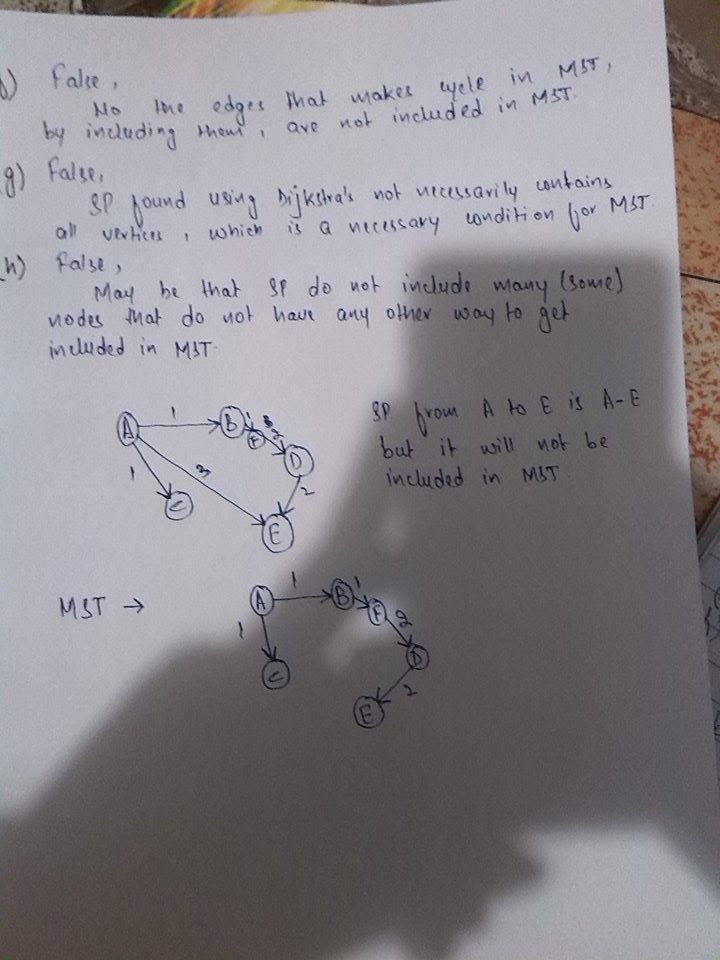 f) False,
No the edges that makes cycle in MST,
by including them, are not included in MST.
g) False,
SP found using Dijkstra's not necessarily contains
all vertices, which is a necessary condition for MST.
h) False,
May be that SP do not include many (some)
nodes that do not have any other way to get
included in MST.
SP from A to E is A-E
but it will not be
included in MST.
A 1 B 1 F 2 D
1 3 2
C E
MST →
A 1 B 1 F 2 D
1 2
C E